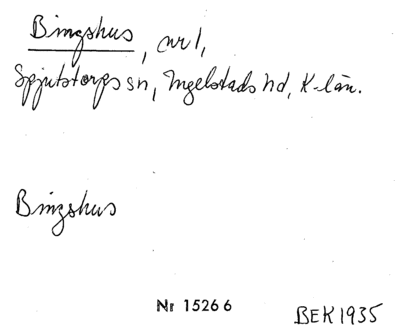 Bingshus, nr 1,
Spjutstorps sn, Ingelstads hd, K-län.
Bingshus
Nr 15266
BEK 1935